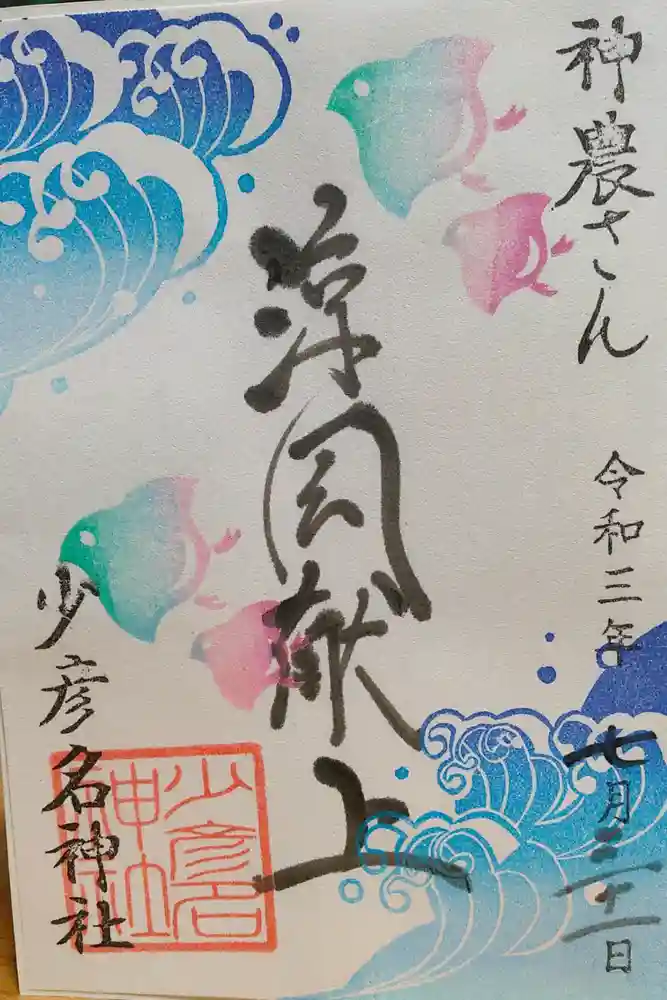 神農さん
令和三年
七月三十一日
涼風献上
少彦名神社
少彦名
神社